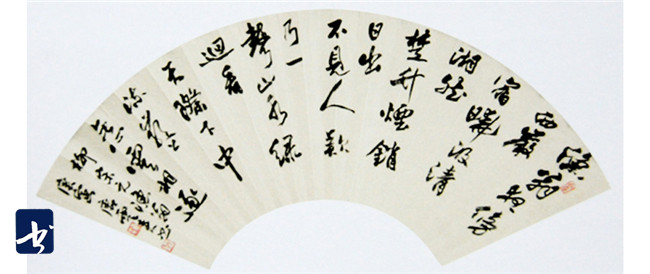 漁翁夜傍
西巖
宿曉汲清
湘燃
楚竹煙銷
日出
不見人欸
乃一
聲山水綠
迴看
天際下中
流巖
上無心雲相逐
柳宗元漁翁
书